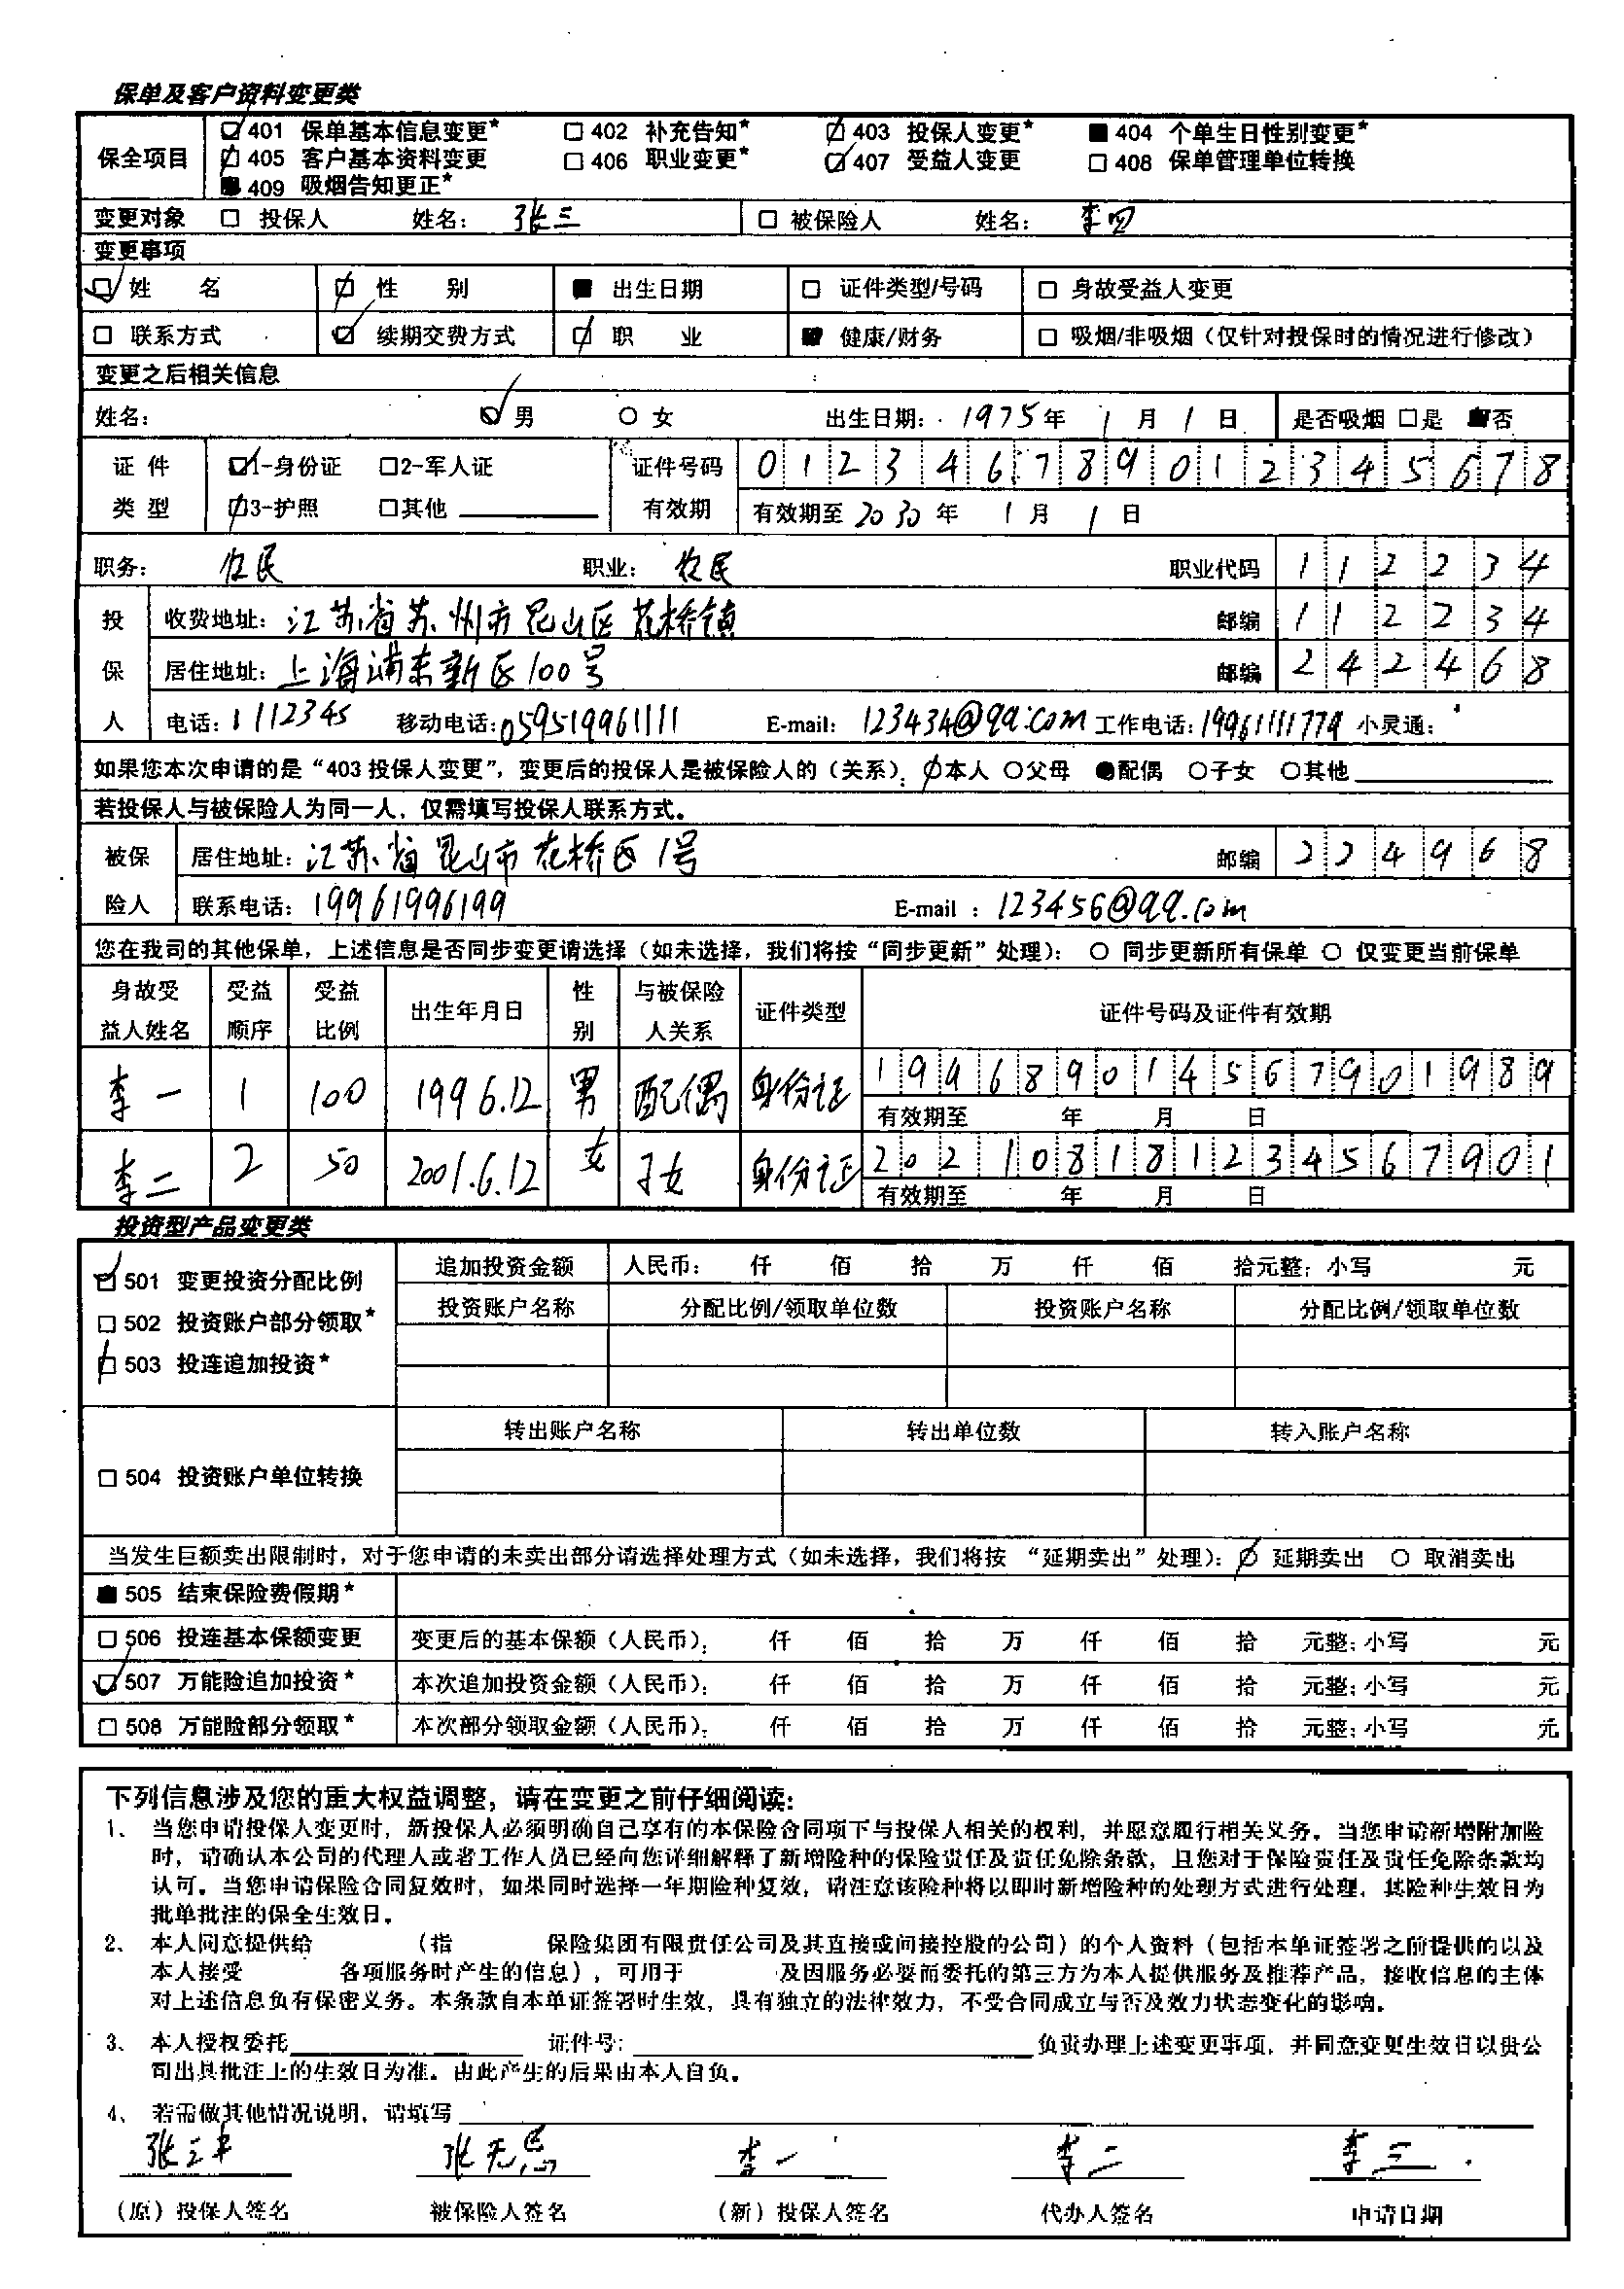 保单及客户资料变更类
保全项目 ☑401 保单基本信息变更* □402 补充告知* ☑403 投保人变更* ■404 个单生日性别变更*
☑405 客户基本资料变更 □406 职业变更* ☑407 受益人变更 □408 保单管理单位转换
■409 吸烟告知更正*
变更对象 □ 投保人 姓名： 张三 □ 被保险人 姓名： 李四
变更事项
☑ 姓 名 ☑ 性 别 ■ 出生日期 □ 证件类型/号码 □ 身故受益人变更
□ 联系方式 ☑ 续期交费方式 ☑ 职 业 ■ 健康/财务 □ 吸烟/非吸烟（仅针对投保时的情况进行修改）
变更之后相关信息
姓名： ☑男 ○ 女 出生日期： 1975 年 1 月 1 日 是否吸烟 □是 ■否
证 件 ☑1-身份证 □2-军人证 证件号码 012346789012345678
类 型 ☑3-护照 □其他 有效期 有效期至 2030 年 1 月 1 日
职务： 农民 职业： 农民 职业代码 112234
投 收费地址： 江苏省苏州市昆山区花桥镇 邮编 112234
保 居住地址： 上海浦东新区100号 邮编 242468
人 电话：1112345 移动电话：059519961111 E-mail： 123434@qq.com 工作电话：19961111779 小灵通：
如果您本次申请的是“403 投保人变更”，变更后的投保人是被保险人的（关系）：☑本人 ○父母 ●配偶 ○子女 ○其他
若投保人与被保险人为同一人，仅需填写投保人联系方式。
被保 居住地址： 江苏省昆山市花桥区1号 邮编 224968
险人 联系电话： 19961996199 E-mail ： 123456@qq.com
您在我司的其他保单，上述信息是否同步变更请选择（如未选择，我们将按“同步更新”处理）： ○ 同步更新所有保单 ○ 仅变更当前保单
身故受益人姓名 受益顺序 受益比例 出生年月日 性别 与被保险人关系 证件类型 证件号码及证件有效期
李一 1 100 1996.12 男 配偶 身份证 199689014567901989
有效期至 年 月 日
李二 2 50 2001.6.12 女 子女 身份证 202108181234567901
有效期至 年 月 日
投资型产品变更类
☑501 变更投资分配比例 追加投资金额 人民币： 仟 佰 拾 万 仟 佰 拾元整；小写 元
□502 投资账户部分领取* 投资账户名称 分配比例/领取单位数 投资账户名称 分配比例/领取单位数
☑503 投连追加投资*
转出账户名称 转出单位数 转入账户名称
□504 投资账户单位转换
当发生巨额卖出限制时，对于您申请的未卖出部分请选择处理方式（如未选择，我们将按 “延期卖出”处理）：☑ 延期卖出 ○ 取消卖出
■505 结束保险费假期*
□506 投连基本保额变更 变更后的基本保额（人民币）： 仟 佰 拾 万 仟 佰 拾 元整；小写 元
☑507 万能险追加投资* 本次追加投资金额（人民币）： 仟 佰 拾 万 仟 佰 拾 元整；小写 元
□508 万能险部分领取* 本次部分领取金额（人民币）： 仟 佰 拾 万 仟 佰 拾 元整；小写 元
下列信息涉及您的重大权益调整，请在变更之前仔细阅读：
1、 当您申请投保人变更时，新投保人必须明确自己享有的本保险合同项下与投保人相关的权利，并愿意履行相关义务。当您申请新增附加险
时，请确认本公司的代理人或者工作人员已经向您详细解释了新增险种的保险责任及责任免除条款，且您对于保险责任及责任免除条款均
认可。当您申请保险合同复效时，如果同时选择一年期险种复效，请注意该险种将以即时新增险种的处理方式进行处理，其险种生效日为
批单批注的保全生效日。
2、 本人同意提供给 （指 保险集团有限责任公司及其直接或间接控股的公司）的个人资料（包括本单证签署之前提供的以及
本人接受 各项服务时产生的信息），可用于 及因服务必要而委托的第三方为本人提供服务及推荐产品，接收信息的主体
对上述信息负有保密义务。本条款自本单证签署时生效，具有独立的法律效力，不受合同成立与否及效力状态变化的影响。
3、 本人授权委托 证件号： 负责办理上述变更事项，并同意变更生效日以贵公
司出具批注上的生效日为准。由此产生的后果由本人自负。
4、 若需做其他情况说明，请填写
张三丰 张无忌 李一 李二 李三
（原）投保人签名 被保险人签名 （新）投保人签名 代办人签名 申请日期